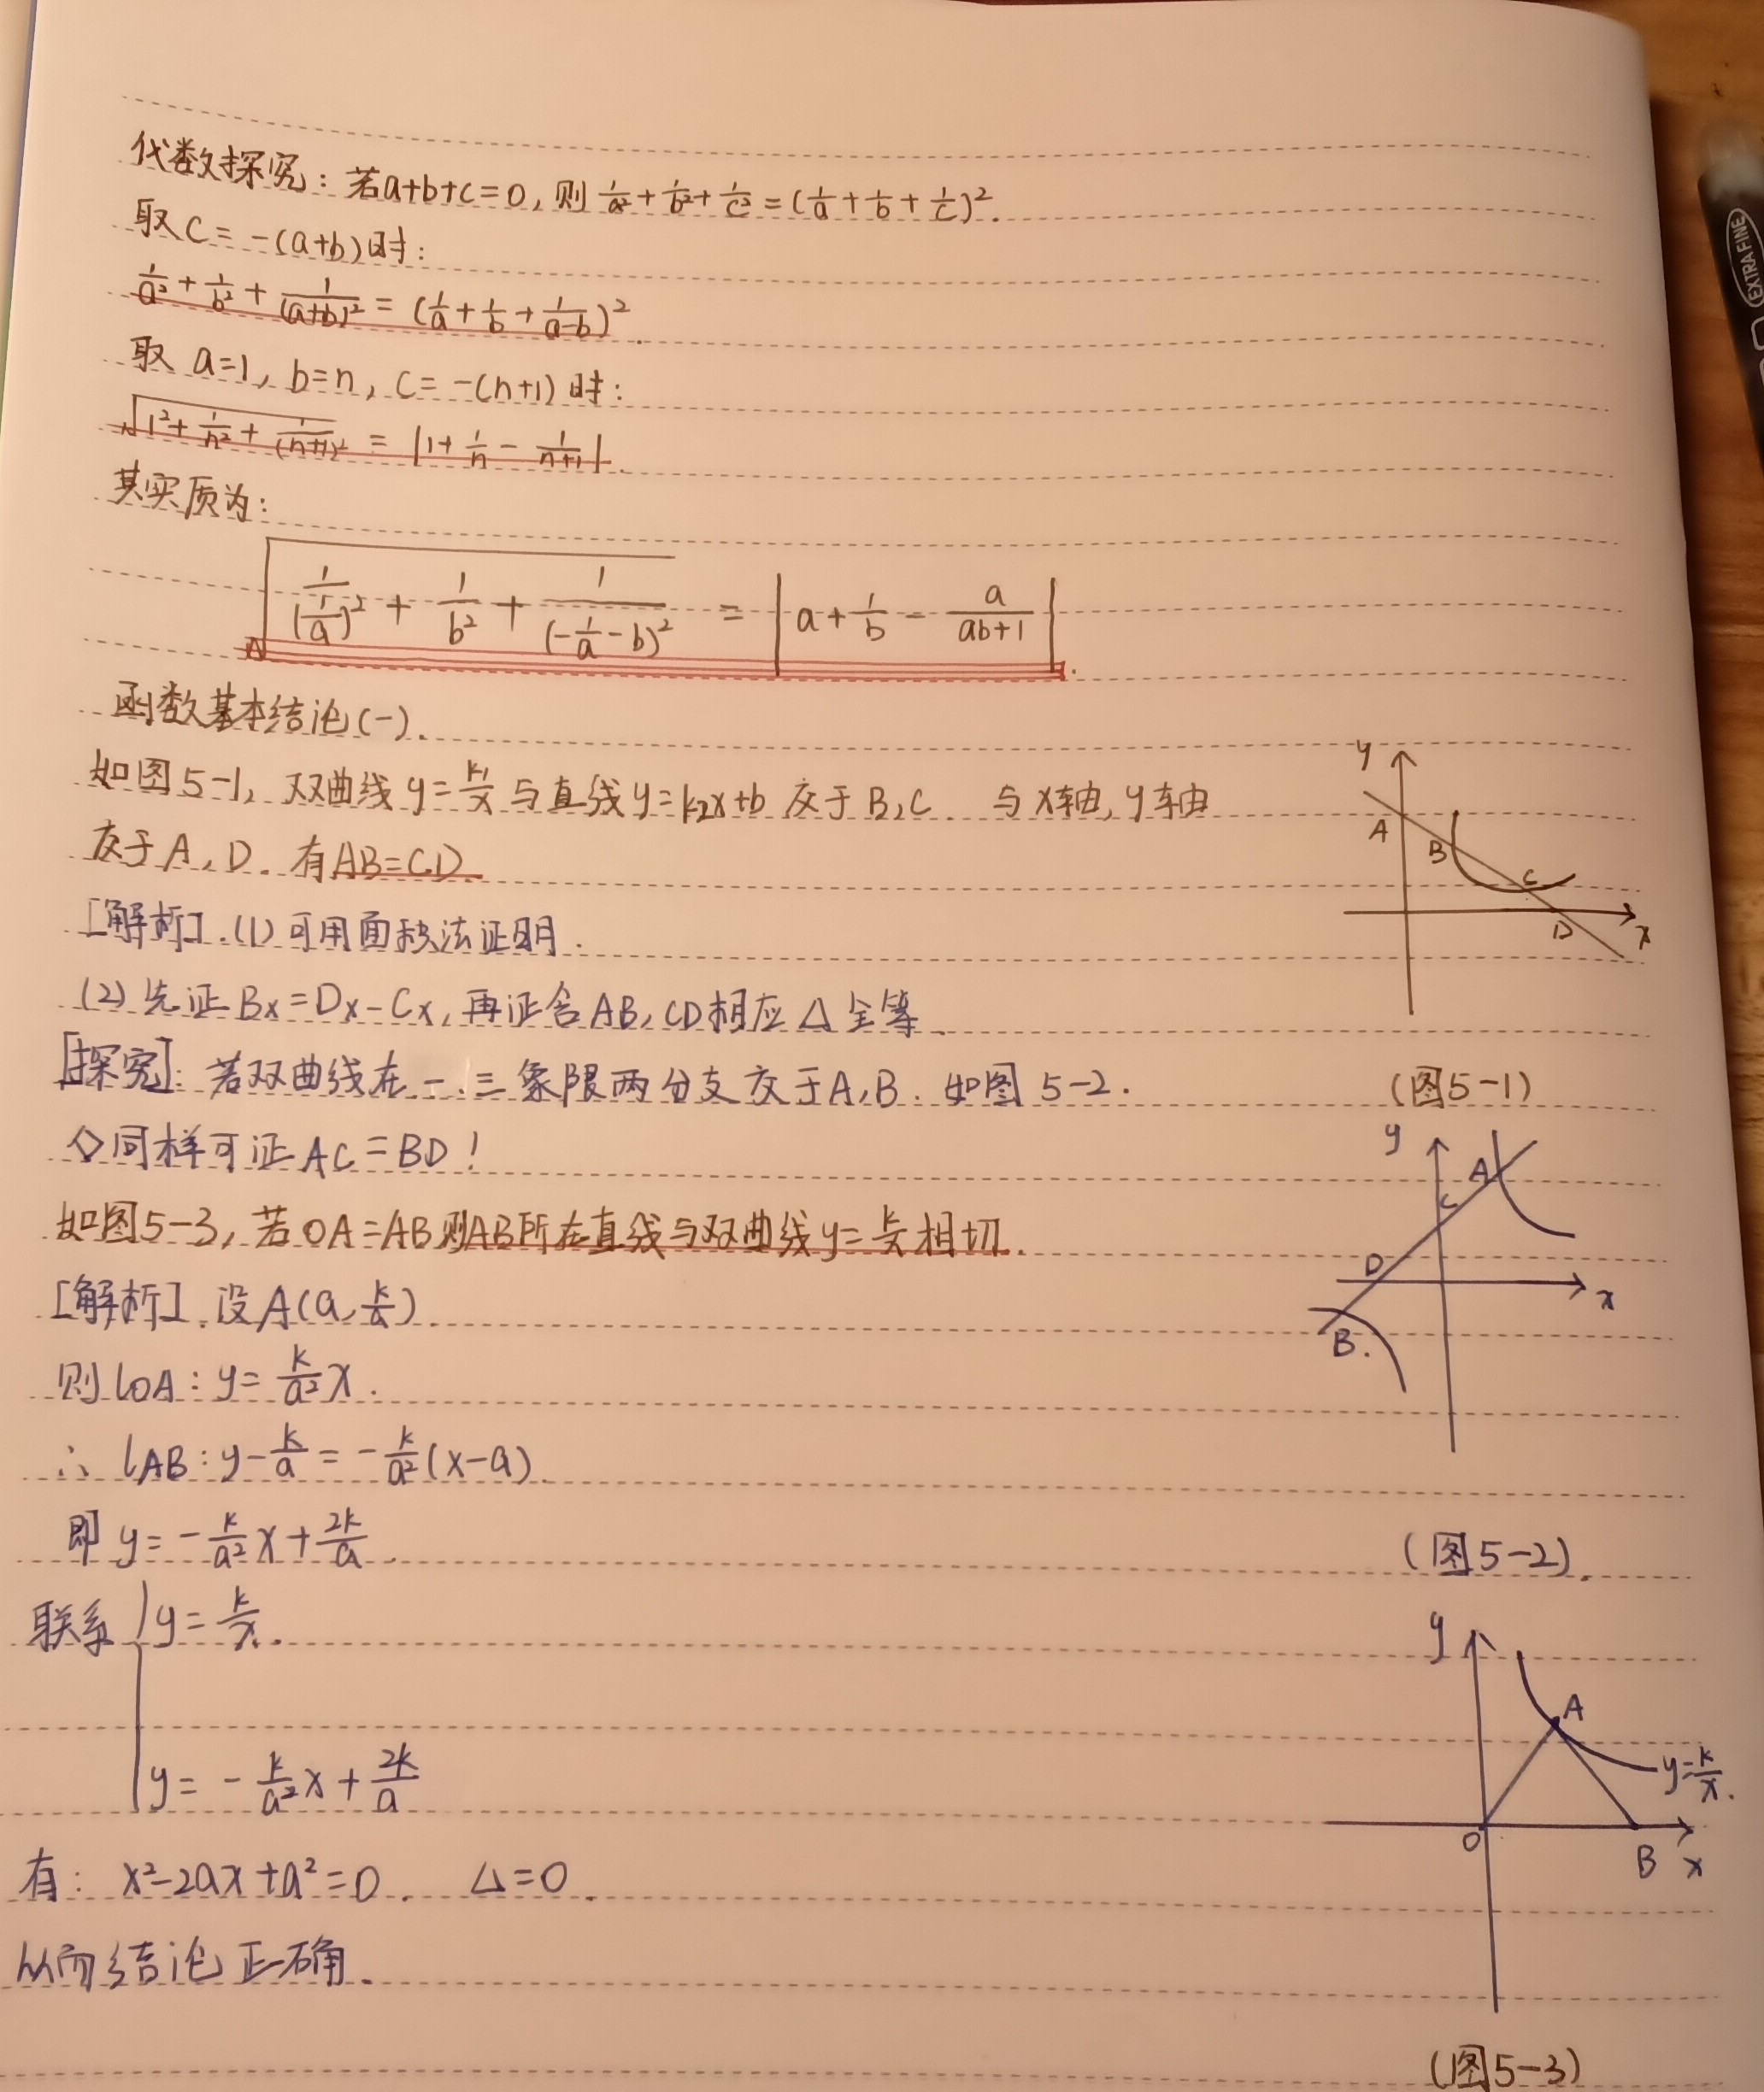 代数探究：若a+b+c=0，则 1/a²+1/b²+1/c²=(1/a+1/b+1/c)².
取C=-(a+b)时：
1/a²+1/b²+1/(a+b)²=(1/a+1/b+1/(a-b))².
取 a=1, b=n, c=-(n+1) 时：
√(1²+1/n²+1/(n+1)²) = |1+1/n-1/(n+1)|.
其实质为：
√(1/(1/a)²+1/b²+1/(-1/a-b)²) = |a+1/b-a/(ab+1)|.
函数基本结论(一).
如图5-1, 双曲线y=k₁/x与直线y=k₂x+b 交于B,C. 与x轴,y轴
交于A,D. 有AB=CD.
[解析].(1)可用面积法证明.
(2)先证Bx=Dx-Cx,再证含AB,CD相应△全等.
[探究]: 若双曲线在一.三象限两分支交于A,B. 如图5-2.
◇同样可证AC=BD!
如图5-3,若OA=AB则AB所在直线与双曲线y=k/x相切.
[解析].设A(a,k/a).
则lOA:y=k/a²x.
∴ lAB:y-k/a=-k/a²(x-a).
即 y=-k/a²x+2k/a.
联系 { y=k/x.
y=-k/a²x+2k/a
有: x²-2ax+a²=0. △=0.
从而结论正确.
y
A
B
C
D
x
(图5-1)
y
A
C
D
x
B.
(图5-2).
y
A
y=k/x.
O
B
x
(图5-3)
EXTRA FINE